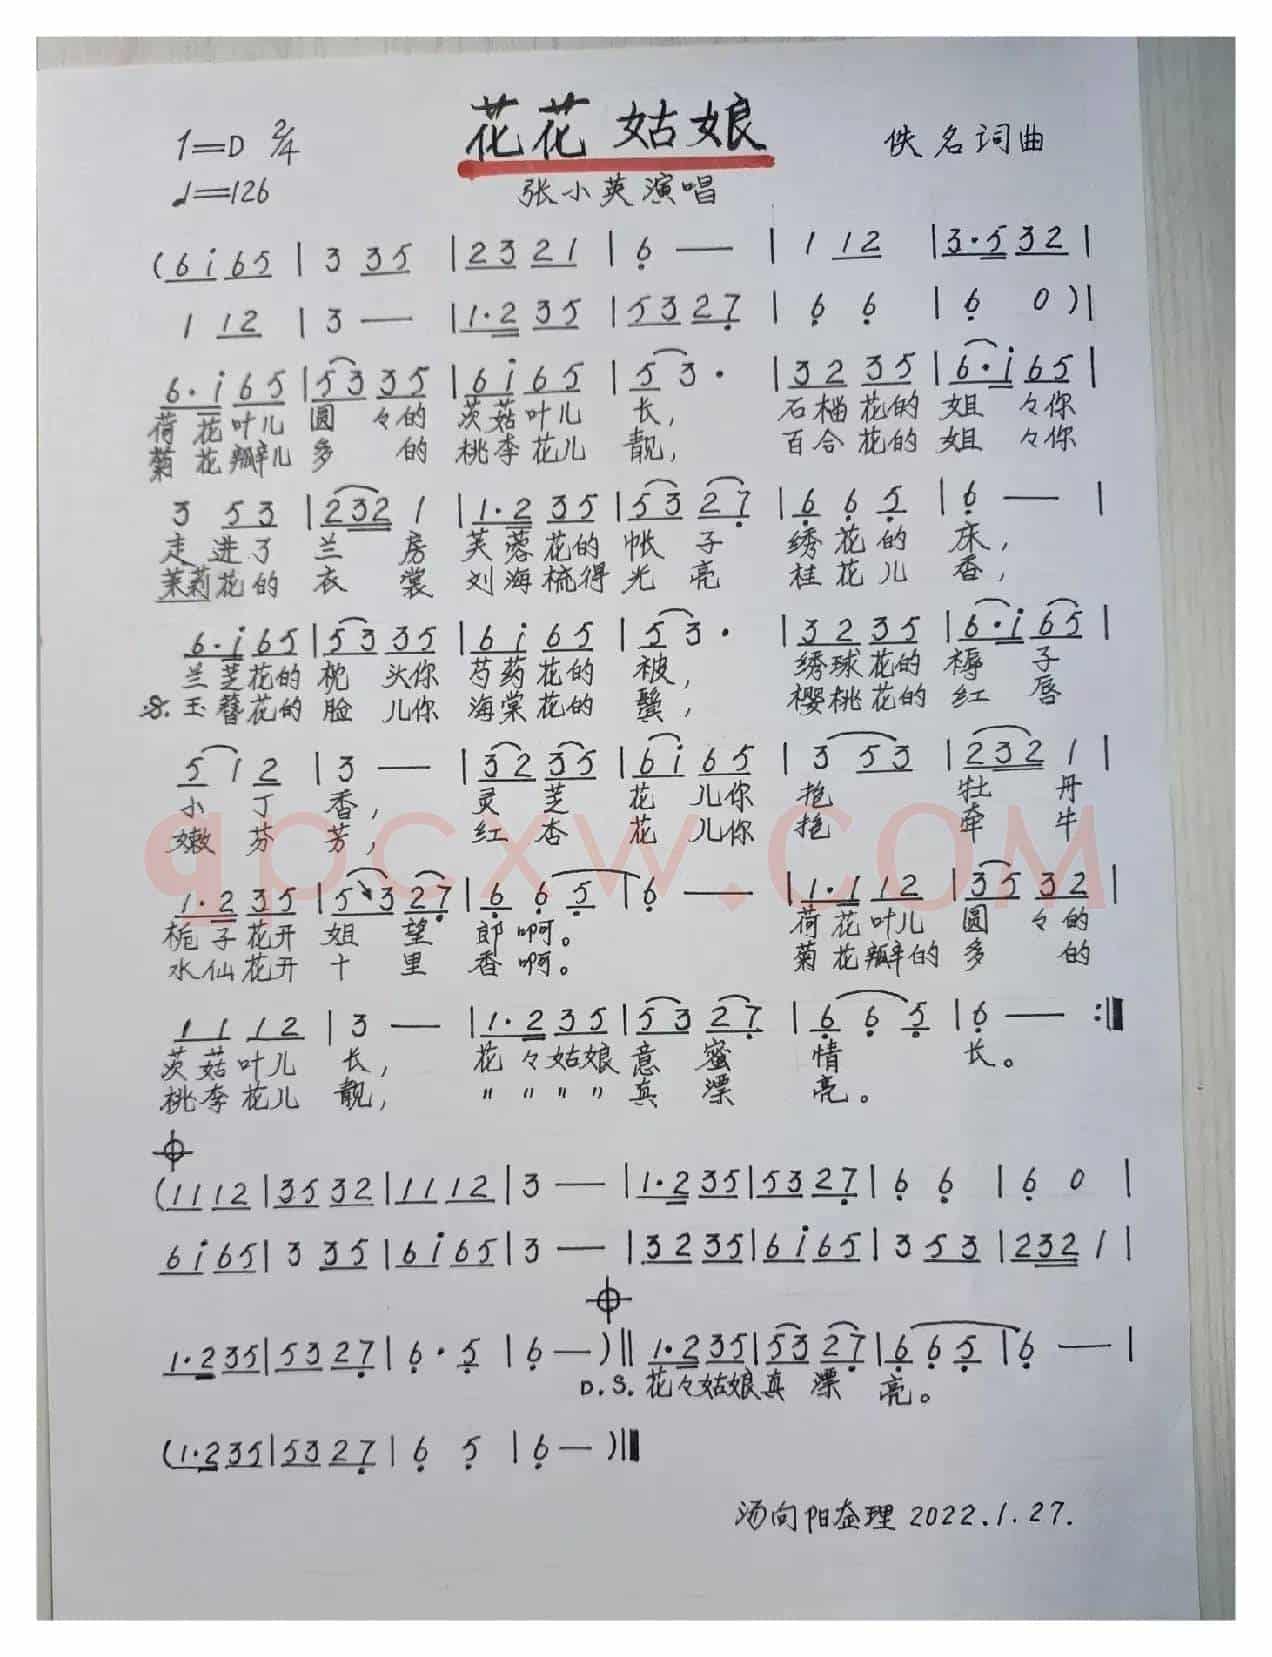 花花姑娘
1=D 2/4
佚名词曲
♩=126
张小英演唱
(6 i 6 5 | 3 3 5 | 2 3 2 1 | 6̣ — | 1 1 2 | 3·5 3 2 |
1 1 2 | 3 — | 1·2 3 5 | 5 3 2 7̣ | 6̣ 6̣ | 6̣ 0 )|
6·i 6 5 | 5 3 3 5 | 6 i 6 5 | 5 3· | 3 2 3 5 | 6·i 6 5 |
荷花叶儿圆々的茨菇叶儿长，石榴花的姐々你
菊花瓣儿多的桃李花儿靓，百合花的姐々你
3 5 3 | 2 3 2 1 | 1·2 3 5 | 5 3 2 7̣ | 6̣ 6̣ 5̣ | 6̣ — |
走进了兰房芙蓉花的帐子绣花的床，
茉莉花的衣裳刘海梳得光亮桂花儿香，
6·i 6 5 | 5 3 3 5 | 6 i 6 5 | 5 3· | 3 2 3 5 | 6·i 6 5 |
兰芝花的枕头你芍药花的被，绣球花的褥子
𝄋.玉簪花的脸儿你海棠花的鬓，樱桃花的红唇
5 1 2 | 3 — | 3 2 3 5 | 6 i 6 5 | 3 5 3 | 2 3 2 1 |
小丁香，灵芝花儿你抱牡丹
嫩芬芳，红杏花儿你抱牵牛
qpcxw.COM
1·2 3 5 | 5 3 2 7̣ | 6̣ 6̣ 5̣ | 6̣ — | 1·1 1 2 | 3 5 3 2 |
栀子花开姐望郎啊。荷花叶儿圆々的
水仙花开十里香啊。菊花瓣的多的
1 1 1 2 | 3 — | 1·2 3 5 | 5 3 2 7̣ | 6̣ 6̣ 5̣ | 6̣ — :‖
茨菇叶儿长，花々姑娘意蜜情长。
桃李花儿靓，〃〃〃〃真漂亮。
𝄌
(1 1 1 2 | 3 5 3 2 | 1 1 1 2 | 3 — | 1·2 3 5 | 5 3 2 7̣ | 6̣ 6̣ | 6̣ 0 |
6 i 6 5 | 3 3 5 | 6 i 6 5 | 3 — | 3 2 3 5 | 6 i 6 5 | 3 5 3 | 2 3 2 1 |
𝄌
1·2 3 5 | 5 3 2 7̣ | 6̣·5̣ | 6̣ — )‖ 1·2 3 5 | 5 3 2 7̣ | 6̣ 6̣ 5̣ | 6̣ — |
D.S. 花々姑娘真漂亮。
(1·2 3 5 | 5 3 2 7̣ | 6̣ 5̣ | 6̣ — )‖
汤向阳整理 2022.1.27.